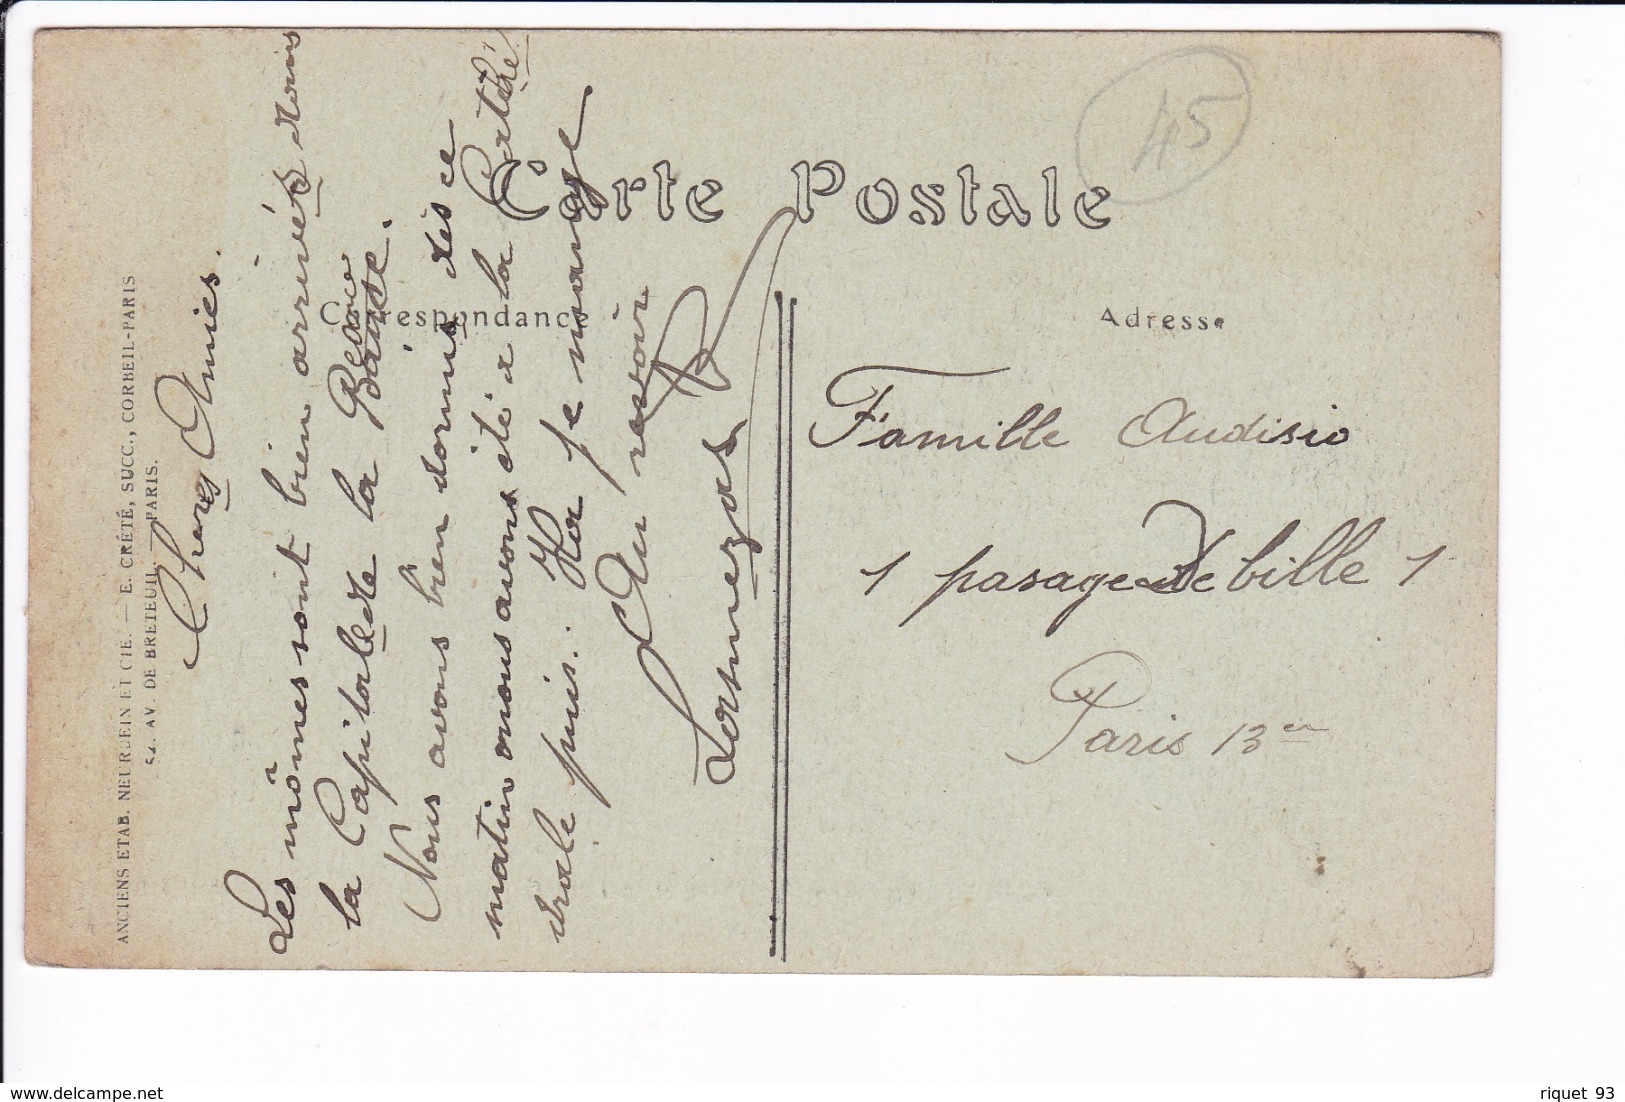 Carte Postale
45
Correspondance
Adresse
ANCIENS ETAB. NEURDEIN ET CIE. — E. CRÉTÉ, SUCC., CORBEIL-PARIS
52. AV. DE BRETEUIL — PARIS.
Cheres Amies.
Les mômes sont bien arrivés dans
la Capitale de la Beauce
Nous avons bien dormis dès ce
matin nous avons été a la
drole puis. je mange
Au revoir
Famille Audisio
1 pasage de bille 1
Paris 13 en
delcampe.net
riquet 93